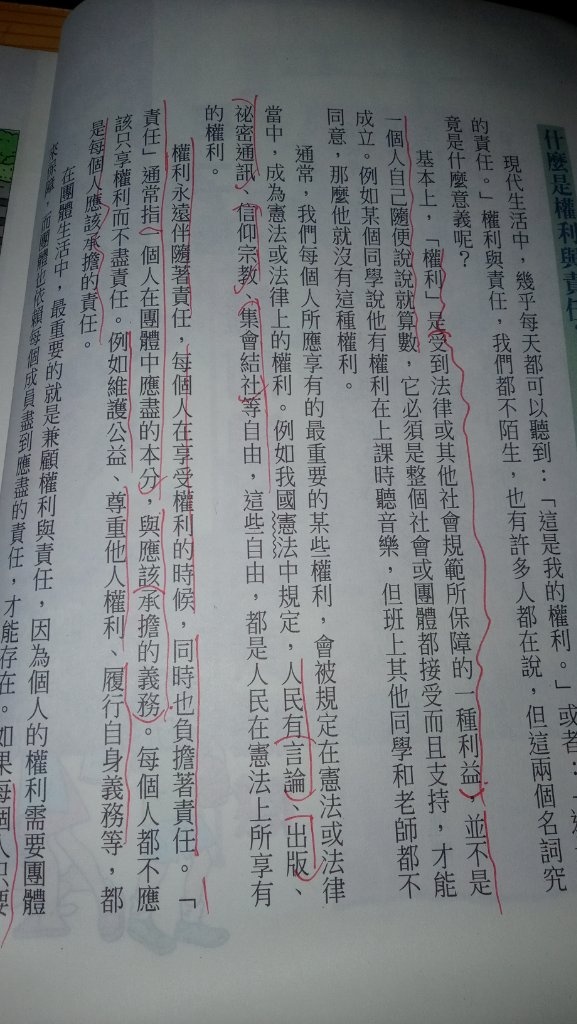 什麼是權利與責任
現代生活中，幾乎每天都可以聽到：「這是我的權利。」或者：「這
的責任。」權利與責任，我們都不陌生，也有許多人都在說，但這兩個名詞究
竟是什麼意義呢？
基本上，「權利」是受到法律或其他社會規範所保障的一種利益，並不是
一個人自己隨便說說就算數，它必須是整個社會或團體都接受而且支持，才能
成立。例如某個同學說他有權利在上課時聽音樂，但班上其他同學和老師都不
同意，那麼他就沒有這種權利。
通常，我們每個人所應享有的最重要的某些權利，會被規定在憲法或法律
當中，成為憲法或法律上的權利。例如我國憲法中規定，人民有言論、出版、
祕密通訊、信仰宗教、集會結社等自由，這些自由，都是人民在憲法上所享有
的權利。
權利永遠伴隨著責任，每個人在享受權利的時候，同時也負擔著責任。「
責任」通常指一個人在團體中應盡的本分，與應該承擔的義務。每個人都不應
該只享權利而不盡責任。例如維護公益、尊重他人權利、履行自身義務等，都
是每個人應該承擔的責任。
在團體生活中，最重要的就是兼顧權利與責任，因為個人的權利需要團體
來保障，而團體也依賴每個成員盡到應盡的責任，才能存在。如果每個人只要